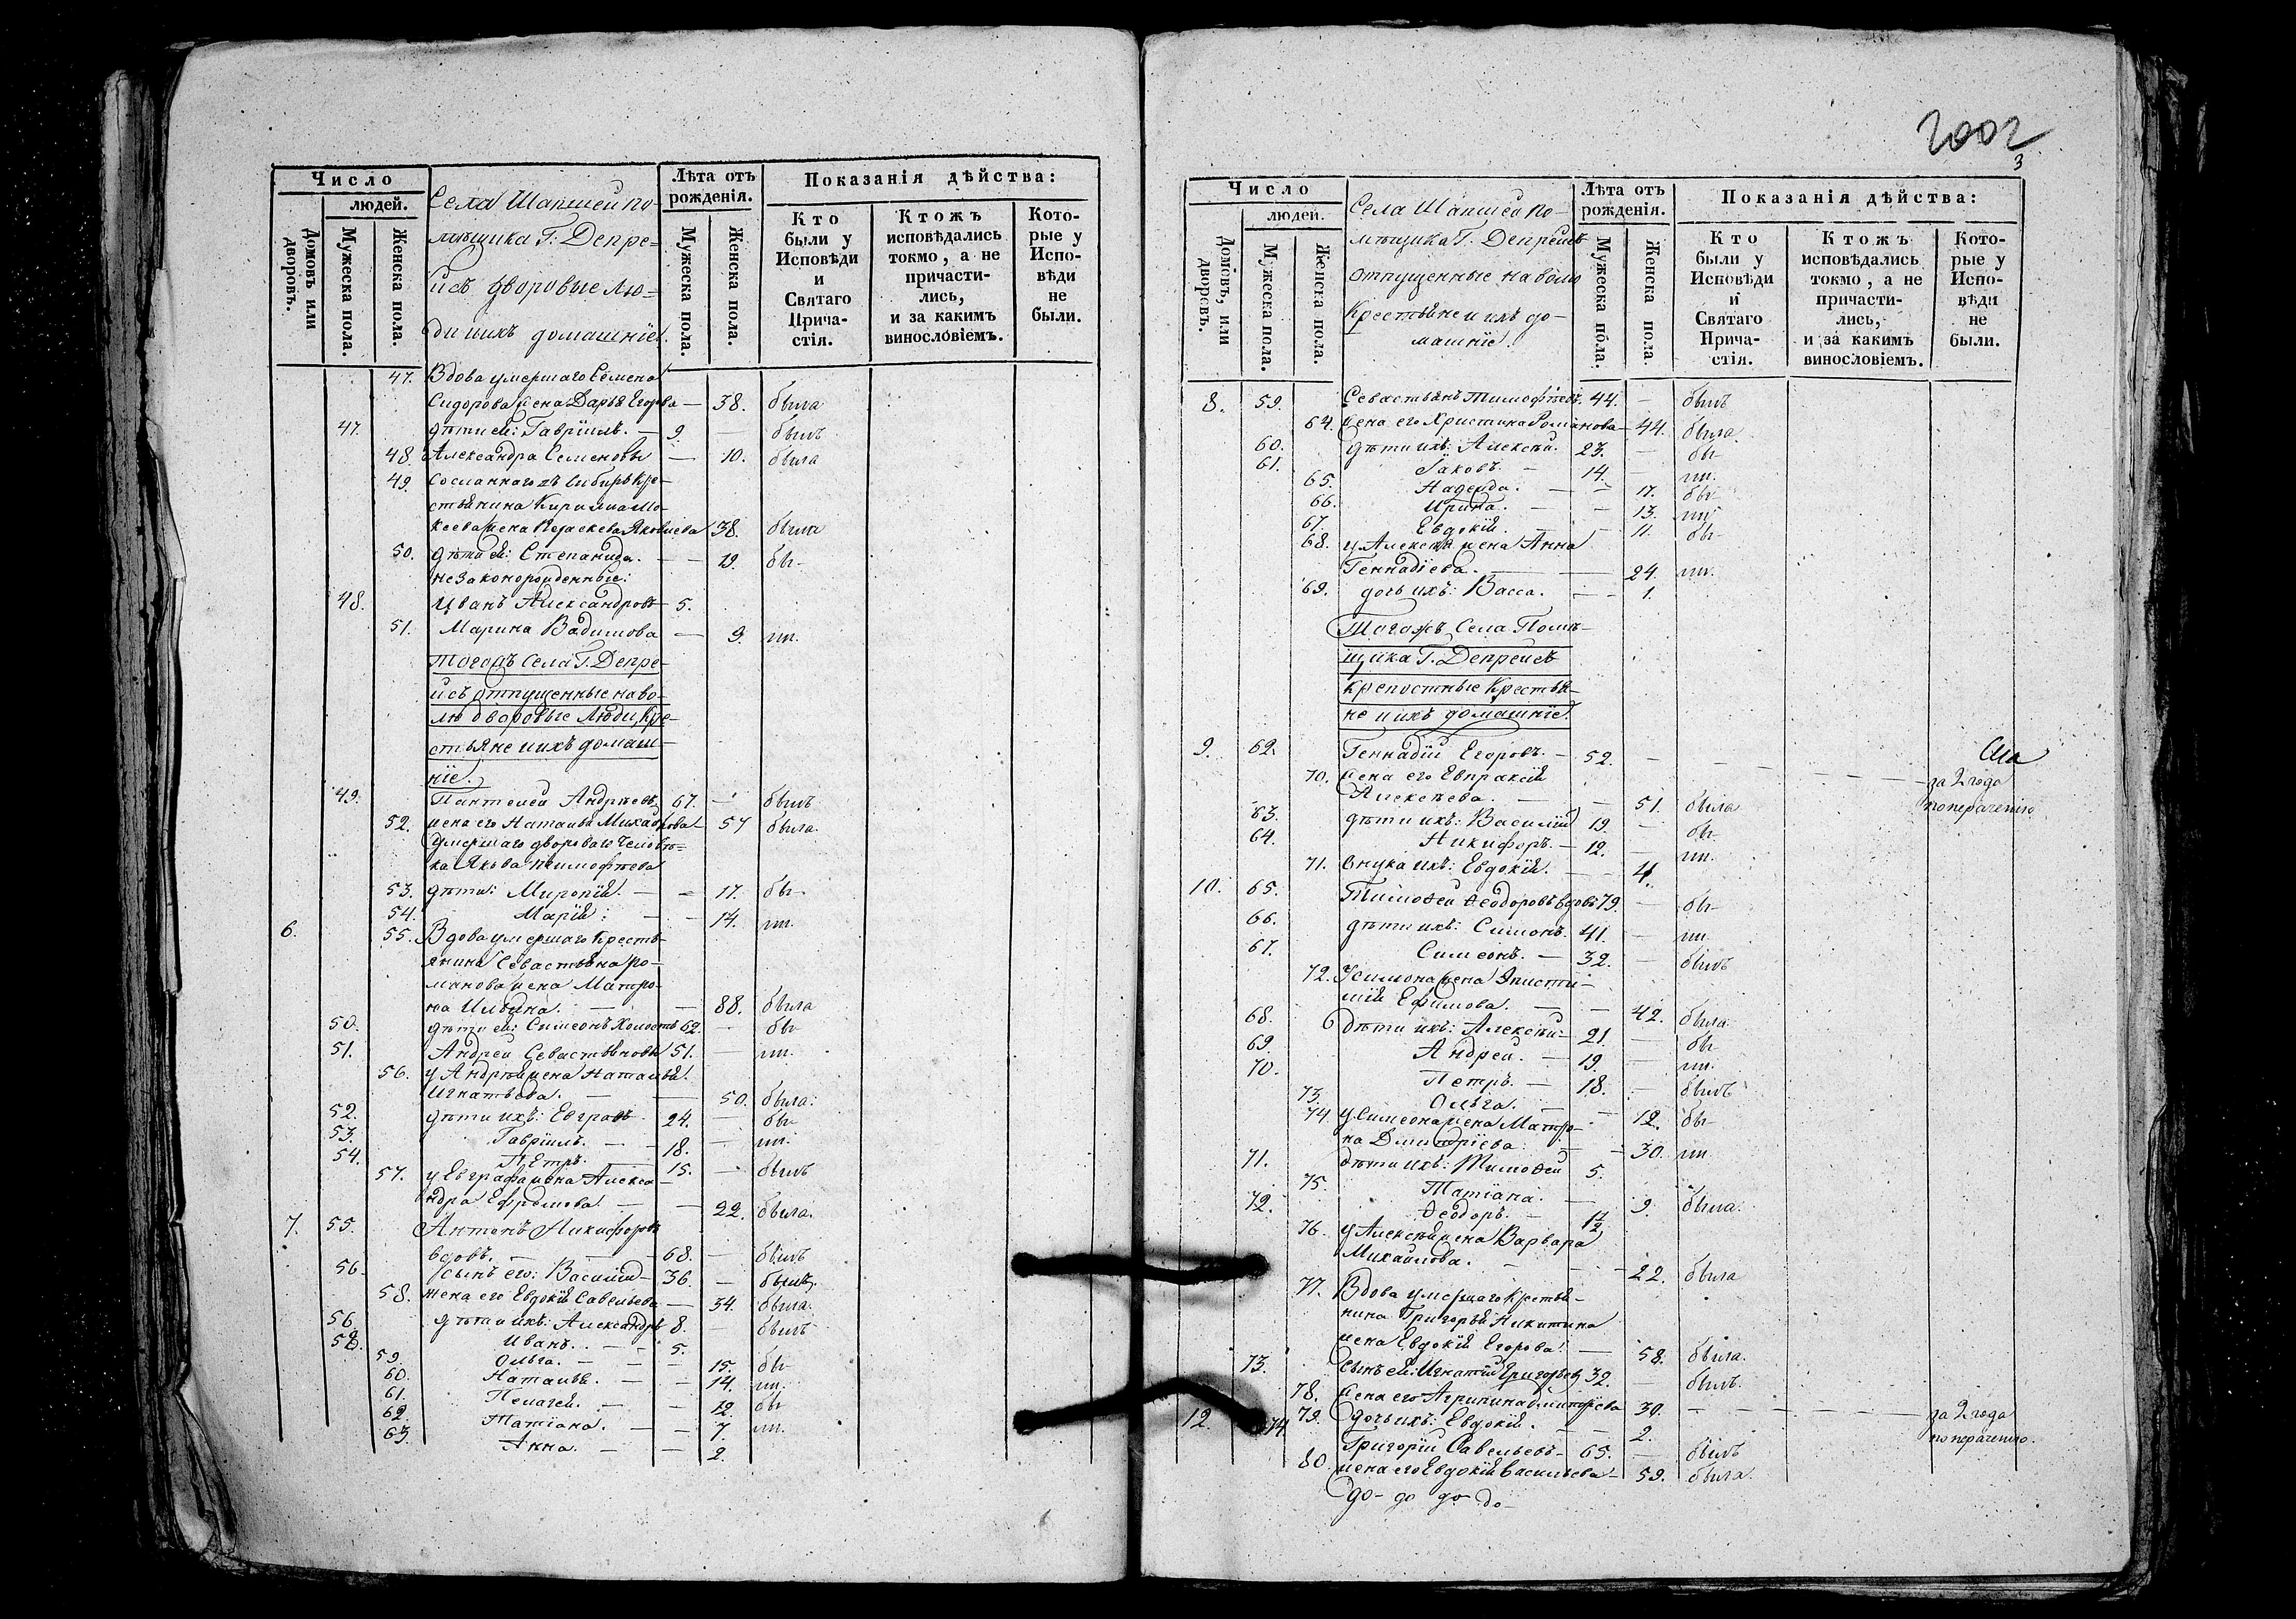 Число
людей.
Домовъ или дворовъ.
Мужеска пола.
Женска пола.
Села Шапшей по-
мѣщика Г: Депре-
йсъ дворовые лю-
ди и ихъ домашніе.
Лѣта отъ рожденія.
Мужеска пола.
Женска пола.
Показанія дѣйства:
Кто были у Исповѣди и Святаго Прича-стія.
Ктожъ исповѣдались токмо, а не причасти-лись, и за какимъ винословіемъ.
Кото-рые у Испо-вѣди не были.
47. Вдова умершаго Семена
Сидорова жена Дарья Егорова — 38. была
47. дѣти ей: Гавріилъ. — 9. — былъ
48. Александра Семеновы — 10. была
49. Сосланнаго въ Сибирь кре-
стьянина Кирилла Мо-
кеева жена Параскева Яковлева 38. была
50. дѣти ей: Степанида. — — 19. бы-
незаконорожденные:
48. Иванъ Александровъ 5.
51. Марина Вадимова — 9. пп.
Тогожъ Села Г. Депре-
йсъ отпущенные на во-
лю дворовые Люди, Кре-
стьяне и ихъ домаш-
ніе.
49. Пантелей Андрѣевъ 67. — былъ
52. жена его Наталья Михайлова — 57 была.
Умершаго двороваго челов
ѣ=
ка Якова Тимофѣева
53. дѣти: Миропія. — — 17. бы-
54. Марія: — — 14. пп.
6. 55. Вдова умершаго кресть-
янина Севастьяна Ро-
манова жена Матро-
на Ильина. — — 88. была
50. дѣти ей: Симеонъ холостъ 62. — бы-
51. Андрей Севастьяновъ 51. — пп.
56. у Андрѣя жена Наталья
Игнатьева. — — 50. была.
52. дѣти ихъ: Евграфъ 24. — бы-
53. Гавріилъ. — 18. — пп.
54. Петръ. — 15. — былъ
57. у Евграфа жена Алекса-
ндра Ефремова — — 22. была.
7. 55. Антонъ Никифоровъ
вдовъ. — 68. — былъ
56. сынъ его: Василій — 36. — былъ.
58. жена его Евдокія Савельева — 34. была.
56 дѣти ихъ: Александръ 8. — былъ
58. Иванъ. — 5.
59. Ольга. — — 15. бы-
60. Наталья. — — 14. пп.
61. Пелагея. — — 12. бы-
62. Татіана. — — 7. пп.
63. Анна. — — 2.
2002
3
Число
людей.
Домовъ, или дворовъ.
Мужеска пола.
Женска пола.
Села Шапшей по-
мѣщика Г. Депрейсъ
отпущенные на волю
Крестьяне и ихъ до-
машніе.
Лѣта отъ рожденія.
Мужеска пола.
Женска пола.
Показанія дѣйства:
Кто были у Исповѣди и Святаго Прича-стія.
Ктожъ исповѣдались токмо, а не причасти-лись, и за какимъ винословіемъ.
Кото-рые у Испо-вѣди не были.
8. 59. Севастьянъ Тимофѣевъ. 44. — былъ
64. жена его Христина Романова — 44. была.
60. дѣти ихъ: Алексѣй. 23. — бы-
61. Іаковъ. — 14. — пп.
65. Надежда. — — 17. бы-
66. Ирина. — — 13. пп.
67. Евдокія. — — 11. бы-
68. у Алексѣя жена Анна
Геннадіева. — — 24. пп.
69. дочь ихъ: Васса. — — 1.
Тогожъ Села Помѣ-
щика Г. Депрейсъ
крепостные Крестья-
не и ихъ домашніе.
9. 62. Геннадій Егоровъ. — 52. — — — — — за 2 года
70. жена его Евпраксія
Алексѣева. — — 51. была по нерачению
63. дѣти ихъ: Василій 19. — бы-
64. Никифоръ. — 12. — пп.
71. внука ихъ: Евдокія. — — 4.
10. 65. Тимоѳей Ѳеодоровъ вдовъ 79. — бы-
66. дѣти ихъ: Симонъ. 41. — пп.
67. Симеонъ. — 32. — былъ
72. У Симона жена Эписти-
мія Ефимова. — — 42. была.
68. дѣти ихъ: Алексѣй — 21. — бы-
69. Андрей. — 19. — пп.
70. Петръ. — 18. — былъ
73. Ольга. — — 12. бы-
74. у Симеона жена Матро-
на Дмитріева — — 30. пп.
71. дѣти ихъ: Тимоѳей 5.
75. Татіана. — 9. была.
72. Ѳеодоръ. — 1½
76. у Алексѣя жена Варвара
Михайлова. — — 22. была
77. Вдова умершаго крестья-
нина Григорья Никитина
жена Евдокія Егорова. — 58. была.
73. Сынъ ей: Игнатій Григорьевъ 32. — былъ.
78. жена его Агрипина Дмитріева 30. — — — — за 2 года
79. дочь ихъ: Евдокія. — 2. по нерачению.
12. 74. Григорій Савельевъ — 65. — былъ
80. жена его Евдокія Васильева — 59. была.
до- до до до-